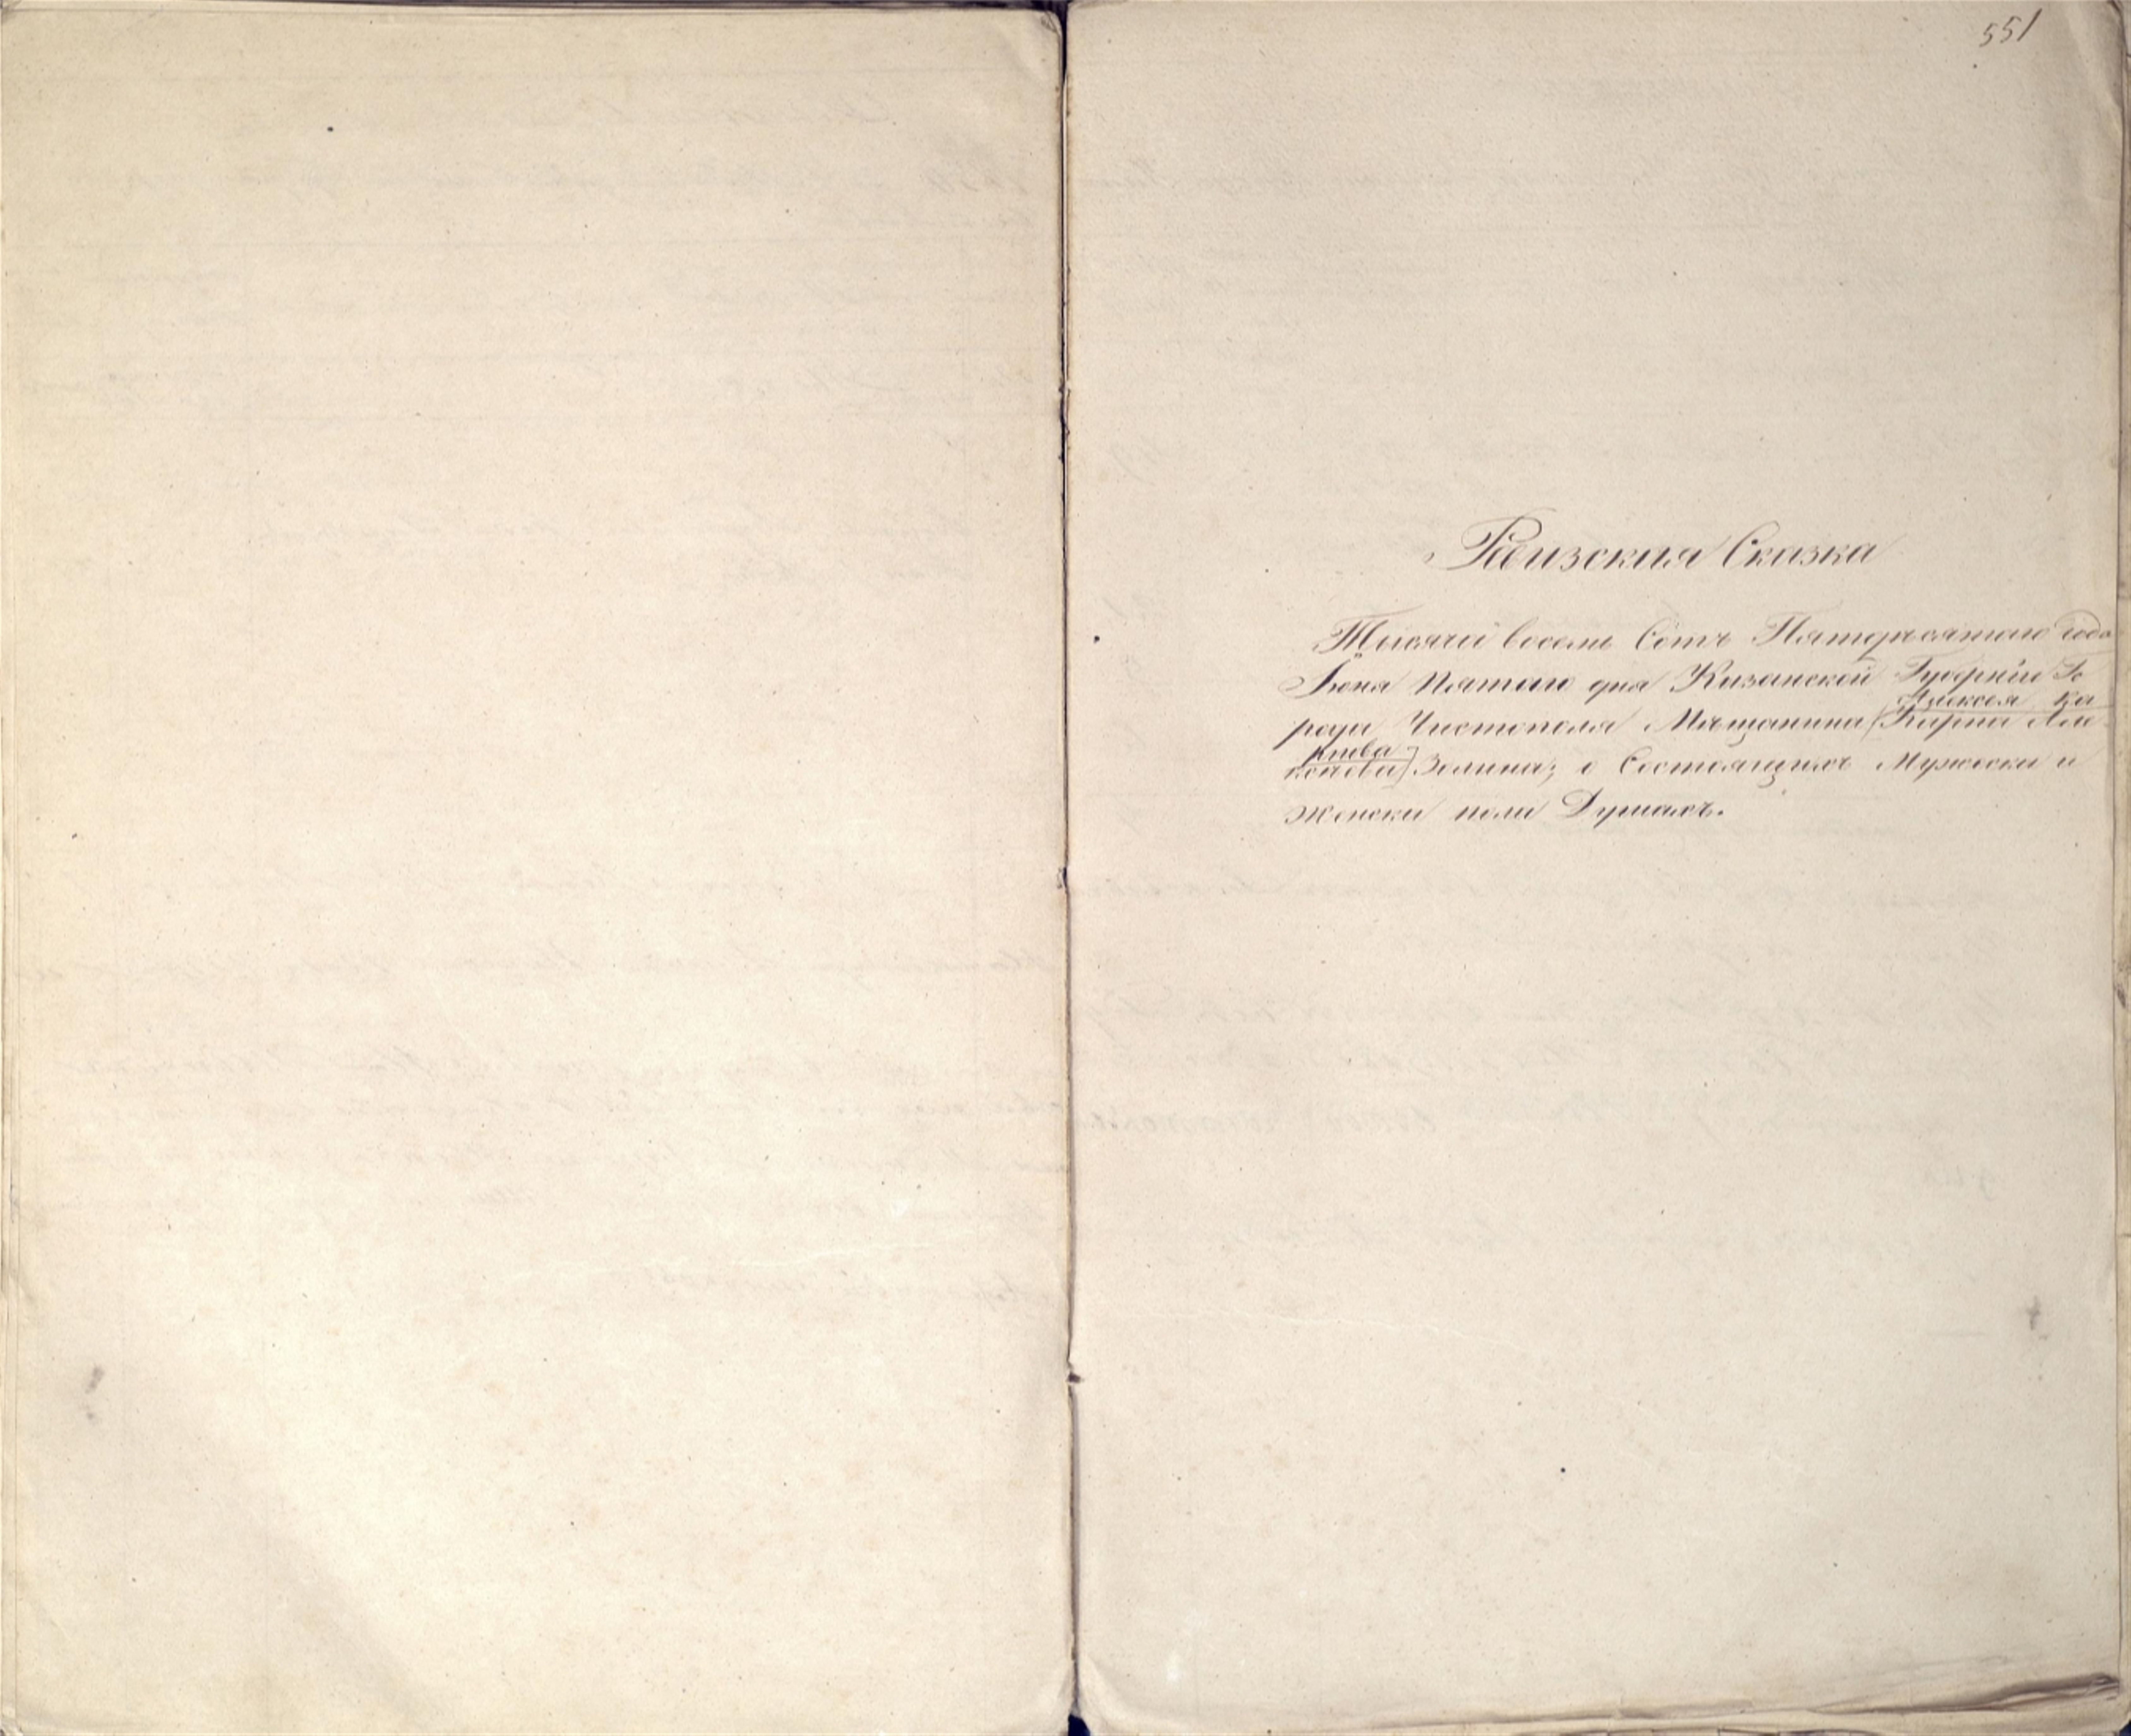 551
Ревизская Сказка
Тысяча восемь Сотъ Пятидесятаго года
Июня Пятаго дня Казанской Губерніи Го
Алексея Ка
рода Чистополя Мещанина (Карпа Але
рпова
Зелина; о Состоящихъ Мужеска и
женска пола Душахъ.